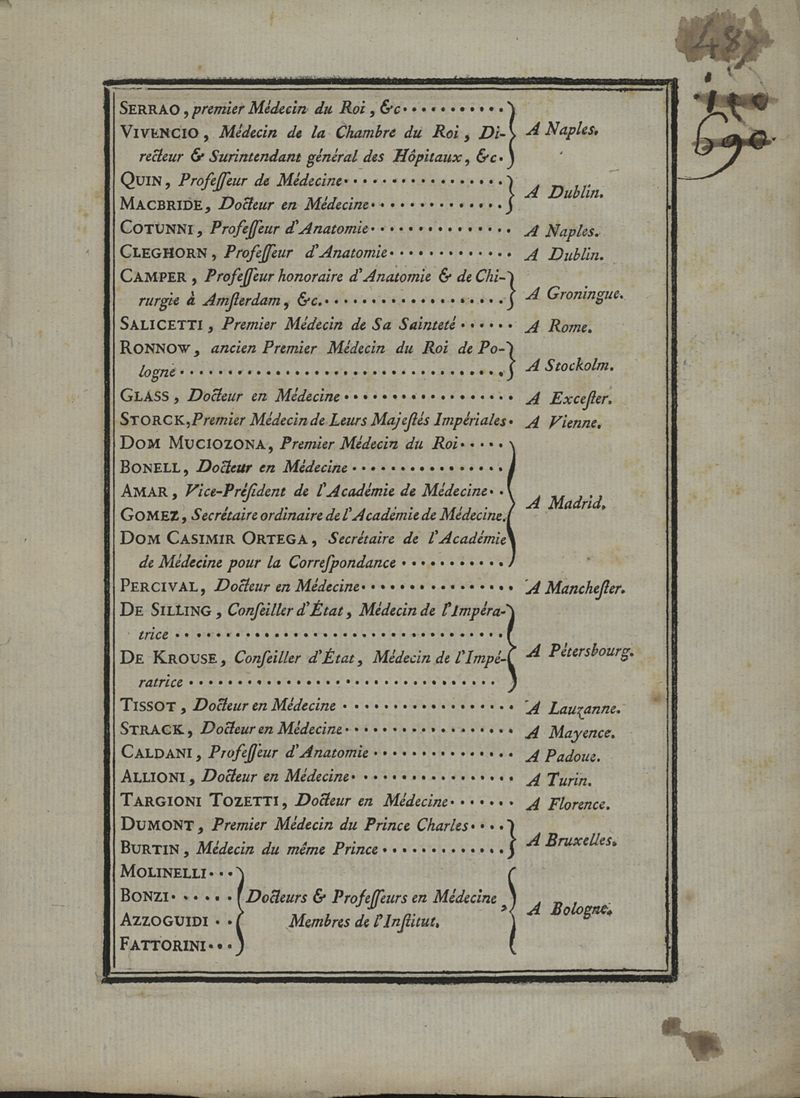 487
690
SERRAO, premier Médecin du Roi, &c··········
VIVENCIO, Médecin de la Chambre du Roi, Di- A Naples.
recteur & Surintendant général des Hôpitaux, &c.
QUIN, Professeur de Médecine···············
A Dublin.
MACBRIDE, Docteur en Médecine·············
COTUNNI, Professeur d'Anatomie·············· A Naples.
CLEGHORN, Professeur d'Anatomie············ A Dublin.
CAMPER, Professeur honoraire d'Anatomie & de Chi-
rurgie à Amsterdam, &c.·················· A Groningue.
SALICETTI, Premier Médecin de Sa Sainteté······ A Rome.
RONNOW, ancien Premier Médecin du Roi de Po-
logne································ A Stockolm.
GLASS, Docteur en Médecine················ A Excester.
STORCK, Premier Médecin de Leurs Majestés Impériales· A Vienne.
DOM MUCIOZONA, Premier Médecin du Roi·····
BONELL, Docteur en Médecine···············
AMAR, Vice-Président de l'Académie de Médecine··
A Madrid.
GOMEZ, Secrétaire ordinaire de l'Académie de Médecine.
DOM CASIMIR ORTEGA, Secrétaire de l'Académie
de Médecine pour la Correspondance··········
PERCIVAL, Docteur en Médecine·············· A Manchester.
DE SILLING, Conseiller d'État, Médecin de l'Impéra-
trice································
DE KROUSE, Conseiller d'État, Médecin de l'Impé- A Pétersbourg.
ratrice······························
TISSOT, Docteur en Médecine················· A Lauzanne.
STRACK, Docteur en Médecine················ A Mayence.
CALDANI, Professeur d'Anatomie·············· A Padoue.
ALLIONI, Docteur en Médecine··············· A Turin.
TARGIONI TOZETTI, Docteur en Médecine······· A Florence.
DUMONT, Premier Médecin du Prince Charles····
A Bruxelles.
BURTIN, Médecin du même Prince············
MOLINELLI···
BONZI······ Docteurs & Professeurs en Médecine,
A Bologne.
AZZOGUIDI·· Membres de l'Institut.
FATTORINI···